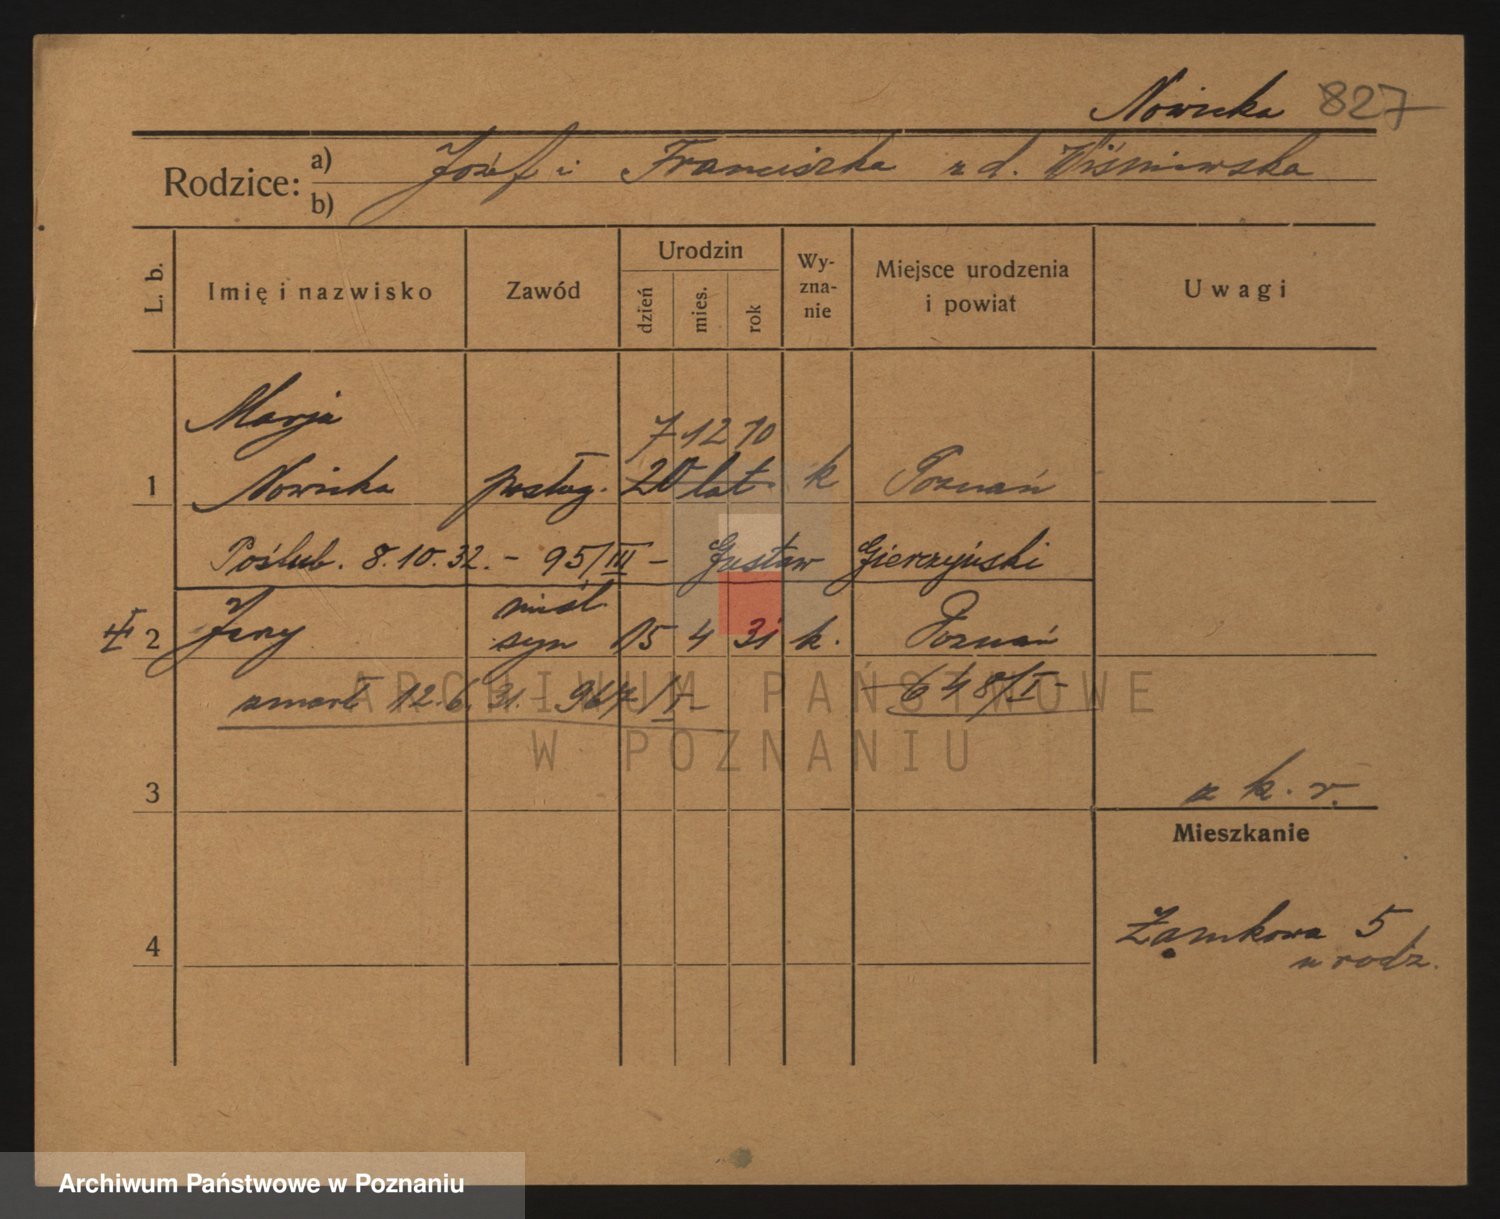 Nowicka 827
Rodzice: a) Józef i Franciszka z d. Wiśniewska
b)
L. b. Imię i nazwisko Zawód Urodzin dzień mies. rok Wy-zna-nie Miejsce urodzenia i powiat Uwagi
Marja 7 12 10
1 Nowicka posług. 20 lat. k Poznań
Poślub. 8.10.32. - 95/III - Gustaw Gierczyński
2 Jerzy syn 15 4 31 k. Poznań
zmarł 12.6.31. 967/I - 648/I -
3 z k. r.
Mieszkanie
4 Zamkowa 5
u rodz.
ARCHIWUM PAŃSTWOWE
W POZNANIU
Archiwum Państwowe w Poznaniu